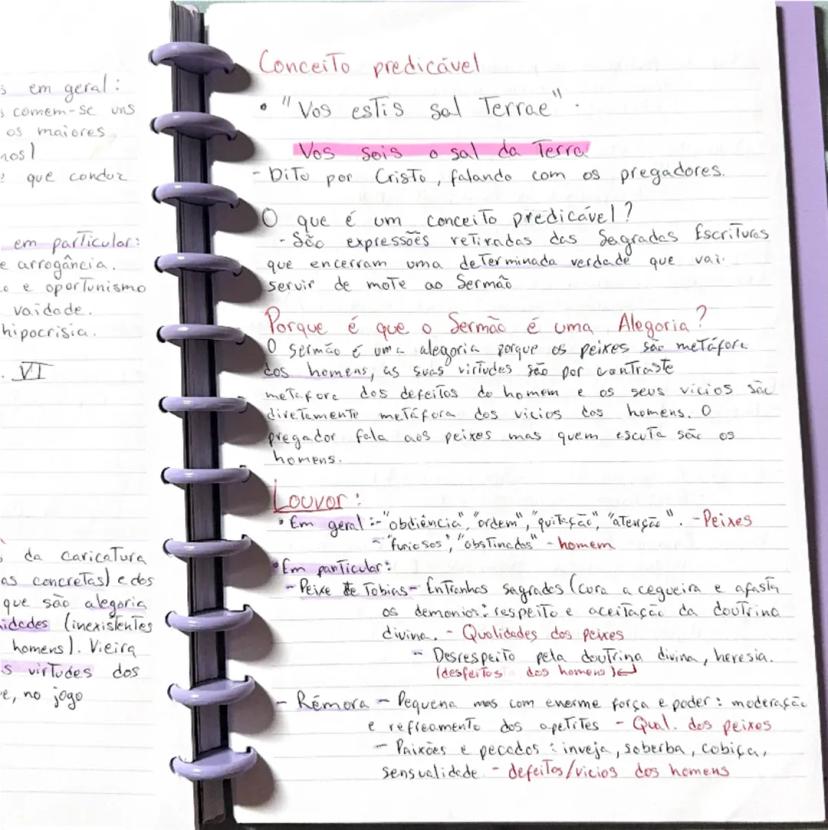 s em geral:
s comem-se uns
os maiores
nos)
e que conduz
em particular:
e arrogância.
o e oportunismo
vaidade.
hipocrisia.
. VI
, da caricatura
as concretas) e dos
que são alegoria
idades (inexistentes
homens). Vieira
s virtudes dos
e, no jogo
Conceito predicável
• "Vos estis sal Terrae".
Vos sois o sal da Terra
- Dito por Cristo, falando com os pregadores.
O que é um conceito predicável?
- São expressões retiradas das Sagradas Escrituras
que encerram uma determinada verdade que vai
servir de mote ao Sermão
Porque é que o Sermão é uma Alegoria?
O sermão é uma alegoria porque os peixes são metáfora
dos homens, as suas virtudes são por contraste
metáfora dos defeitos do homem e os seus vícios são
diretamente metáfora dos vícios dos homens. O
pregador fala aos peixes mas quem escuta são os
homens.
Louvor:
• Em geral:-"obdiência", "ordem", "quitação", "atenção". -Peixes
- "furiosos", "obstinados" - homem
• Em particular:
- Peixe de Tobias - Entranhas sagradas (cura a cegueira e afasta
os demonios: respeito e aceitação da doutrina
divina. - Qualidades dos peixes
- Desrespeito pela doutrina divina, heresia.
(desfeitos dos homens)
- Rémora - Pequena mas com enorme força e poder: moderação
e refreamento dos apetites - Qual. dos peixes
- Paixões e pecados: inveja, soberba, cobiça,
sensualidade - defeitos/vicios dos homens